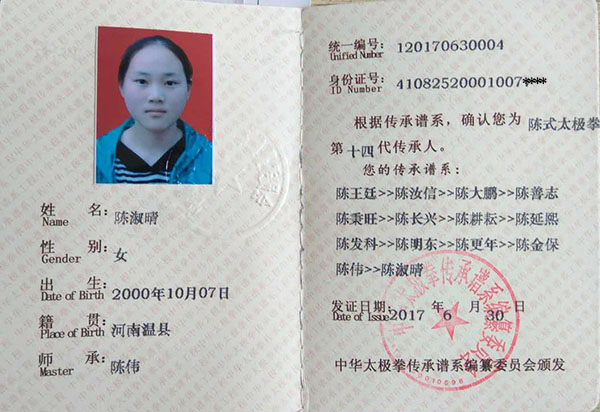 姓 名: 陈淑晴
Name
性 别: 女
Gender
出 生
Date of Birth 2000年10月07日
籍 贯:
Place of Birth 河南温县
师 承:
Master 陈伟
统一编号: 120170630004
Unified Number
身份证号: 41082520001007****
ID Number
根据传承谱系,确认您为 陈式太极拳
第 十四 代传承人。
您的传承谱系:
陈王廷>>陈汝信>>陈大鹏>>陈善志
陈秉旺>>陈长兴>>陈耕耘>>陈延熙
陈发科>>陈明东>>陈更年>>陈金保
陈伟>>陈淑晴
发证日期: 2017 年 6 月 30 日
Date of Issue
中华太极拳传承谱系编纂委员会颁发